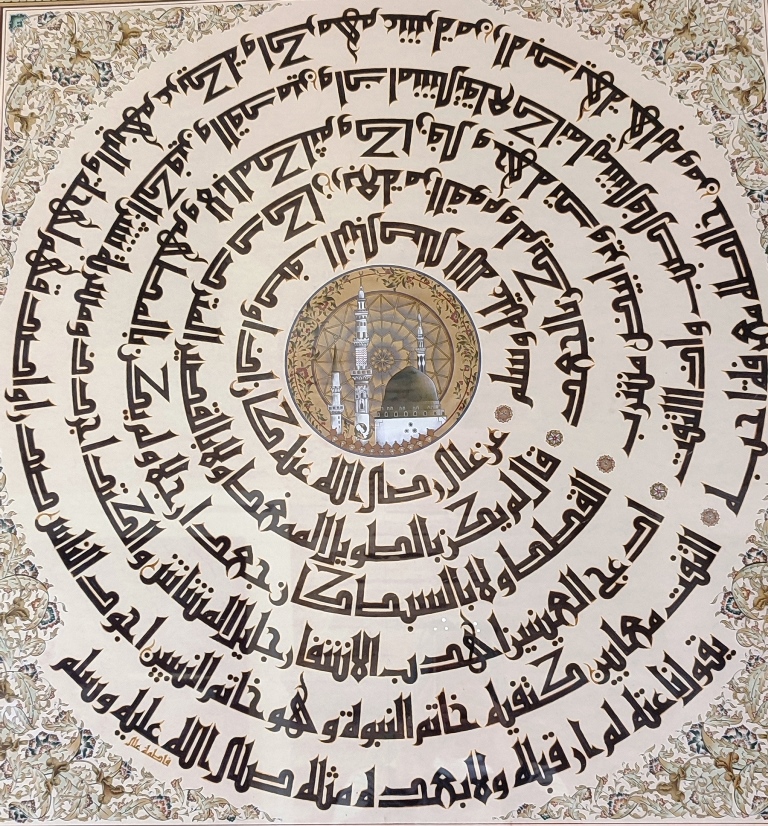 عن علي رضي الله عنه كان إذا وصف النبي صلى الله عليه وسلم
قال لم يكن بالطويل الممغط ولا بالقصير المتردد وكان ربعة من القوم ولم يكن بالجعد
القطط ولا بالسبط كان جعدا رجلا ولم يكن بالمطهم ولا بالمكلثم وكان في وجهه تدوير أبيض مشرب
أدعج العينين أهدب الأشفار جليل المشاش والكتد أجرد ذو مسربة شثن الكفين والقدمين إذا مشى تقلع كأنما في صبب وإذا التفت
التفت معا بين كتفيه خاتم النبوة وهو خاتم النبيين أجود الناس صدرا وأصدق الناس لهجة وألينهم عريكة وأكرمهم عشرة من رآه بديهة هابه ومن خالطه معرفة أحبه
يقول ناعته لم أر قبله ولا بعده مثله صلى الله عليه وسلم